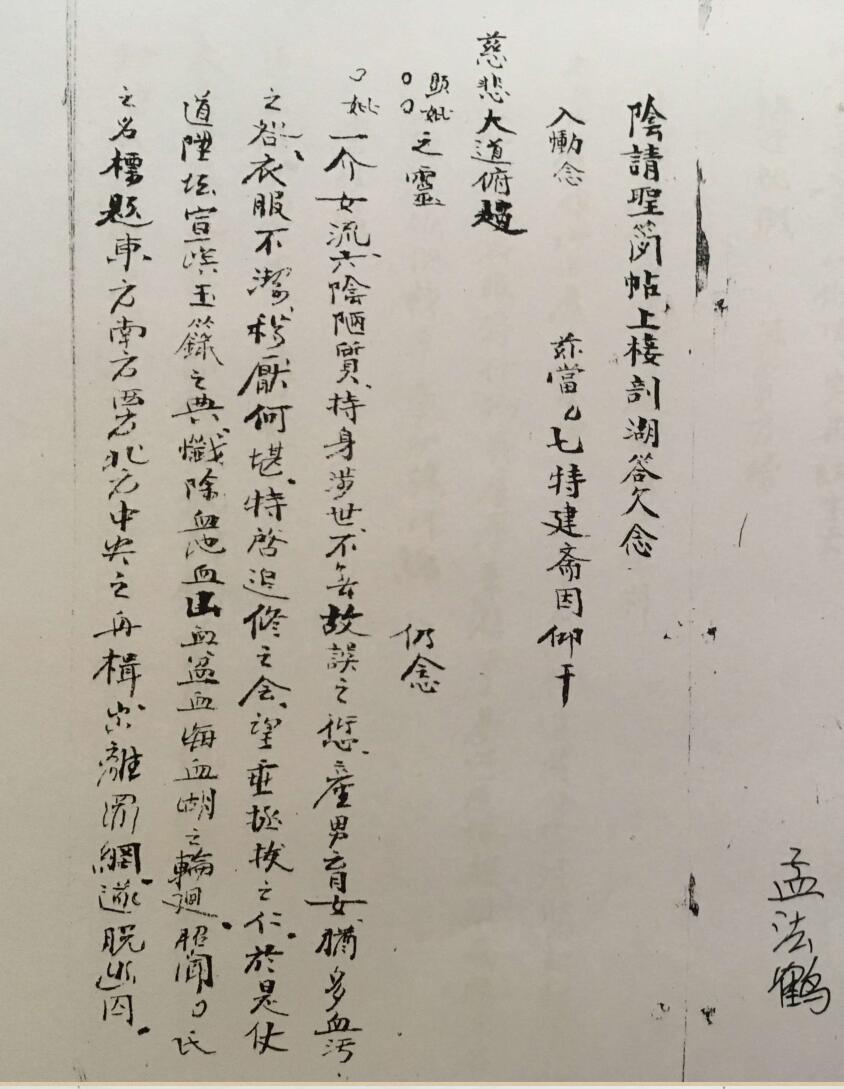 孟法鹤
陰請聖簡帖上棲剖湖答欠念
入慟念 茲當〇七特建斎因仰干
慈悲大道俯趂
顕妣〇〇之靈 仍念
〇妣一介女流六陰陋質持身渉世不無故誤之愆産男育女猶多血污
之咎衣服不潔穢厭何堪特啓追修之会望垂拯拔之仁於是仗
道陞坛宣演玉籙之典懺除血池血山血盆血海血湖之輪廻昭聞〇氏
之名標題東方南方西方北方中央之再楫出離罪網遂脱幽囚